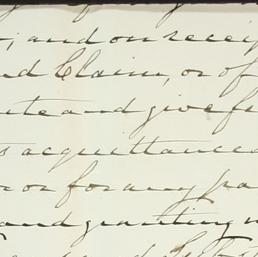 ; and on receip
nd Claim, or of
ute and give fu
s acquittances
n or for any pa
and granting u